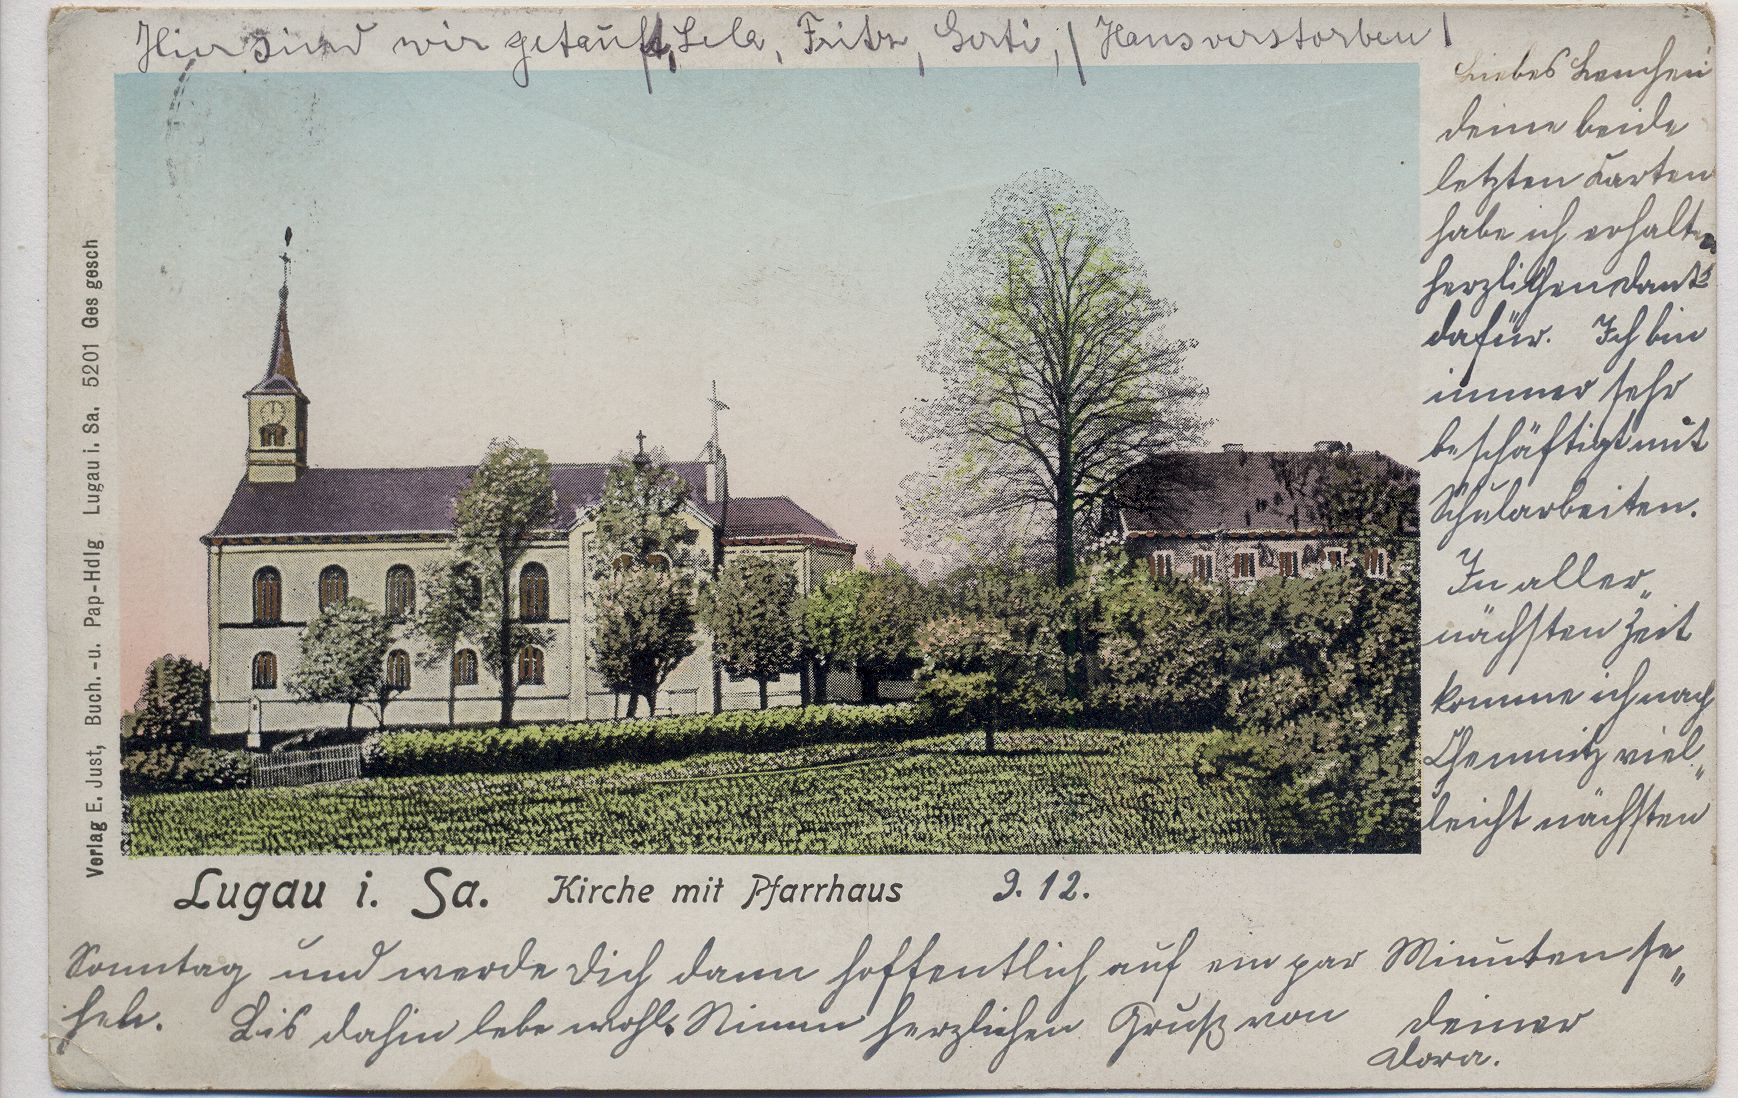 Hier sind wir getauft, Lela, Fritz, Gerti, / Hans verstorben /
Liebes Lenchen
deine beide
letzten Karten
habe ich erhalten
herzlichen Dank
dafür. Ich bin
immer sehr
beschäftigt mit
Schularbeiten.
In aller„
nächsten Zeit
komme ich nach
Chemnitz viel„
leicht nächsten
Verlag E. Just, Buch.-u. Pap-Hdlg Lugau i. Sa. 5201 Ges gesch
Lugau i. Sa. Kirche mit Pfarrhaus 9. 12.
Sonntag und werde Dich dann hoffentlich auf ein par Minuten se„
hen. Bis dahin lebe wohl. Nimm herzlichen Gruß von deiner
Dora.